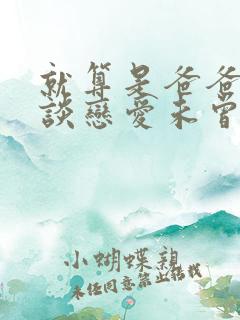 就算是爸爸
談戀愛未曾
小蝴蝶親
未任同意禁止轉載